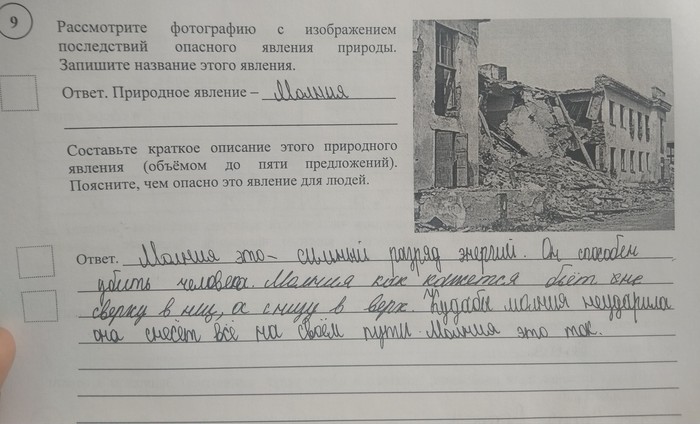 9
Рассмотрите фотографию с изображением
последствий опасного явления природы.
Запишите название этого явления.
Ответ. Природное явление – Молния
Составьте краткое описание этого природного
явления (объёмом до пяти предложений).
Поясните, чем опасно это явление для людей.
Ответ. Молния это- силный разряд энергий. Он способен
убить человека. Молния как кажется бьёт не
сверху в низ, а снизу в верх. Кудабы молния неударила
она снесёт всё на своём пути. Молния это ток.